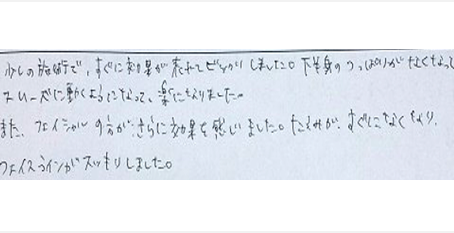 少しの施術で、すぐに効果が表れてビックリしました。下半身のつっぱりがなくなって
スムーズに動くようになって、楽になりました。
また、フェイシャルの方が、さらに効果を感じました。たるみが、すぐになくなり、
フェイスラインがスッキリしました。